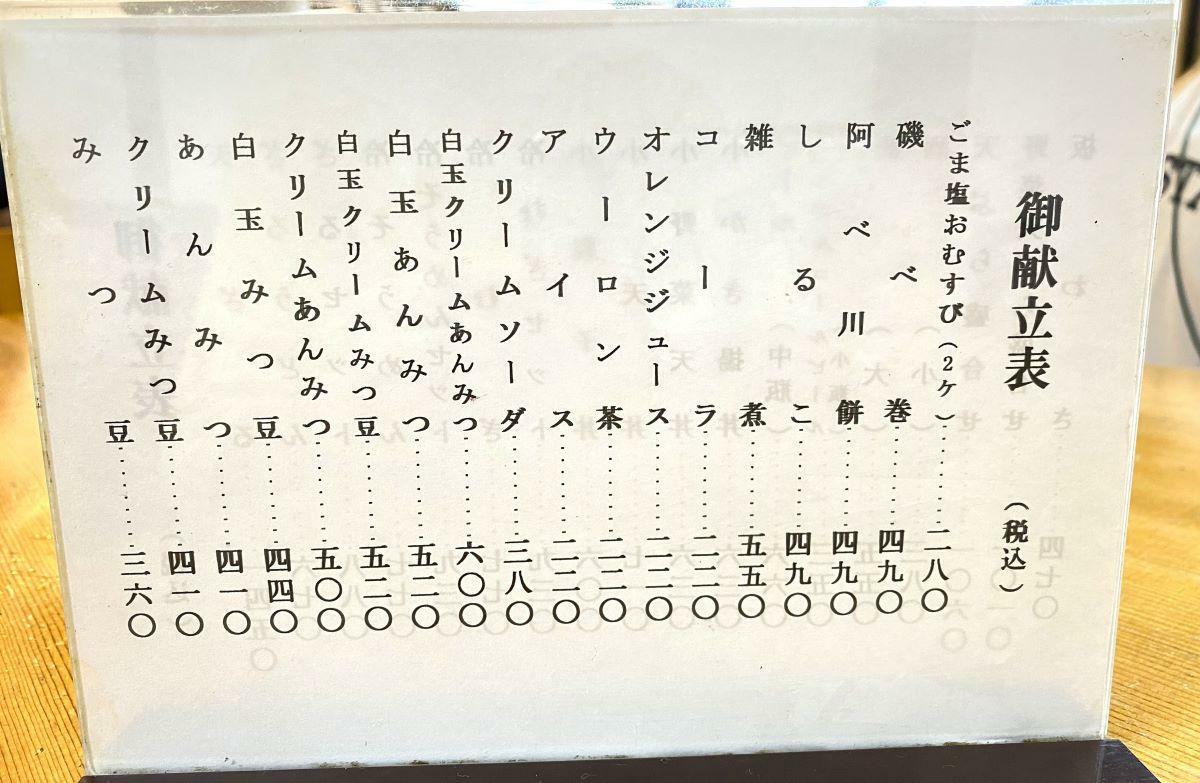 御献立表（税込）
ごま塩おむすび（2ケ）……二八〇
磯べ巻……四九〇
阿べ川餅……四九〇
しるこ……四九〇
雑煮……五五〇
コーラ……二二〇
オレンジジュース……二二〇
ウーロン茶……二二〇
アイス……二二〇
クリームソーダ……三八〇
白玉クリームあんみつ……六〇〇
白玉あんみつ……五二〇
白玉クリームみつ豆……五二〇
クリームあんみつ……五〇〇
白玉みつ豆……四四〇
あんみつ……四一〇
クリームみつ豆……四一〇
みつ豆……三六〇